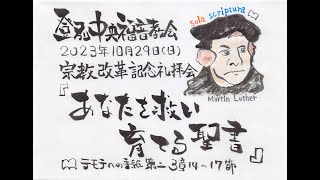 登戸中央福音教会
2023年10月29日(日)
宗教改革記念礼拝会
『あなたを救い
育てる聖書』
テモテへの手紙 第二 3章14~17節
sola scriptura
Martin Luther